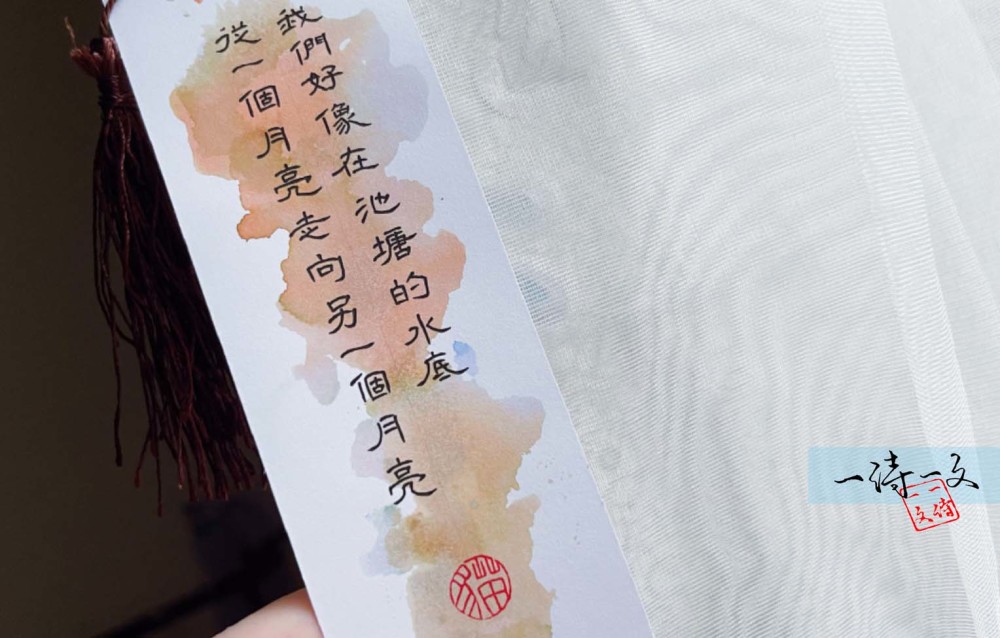 我們好像在池塘的水底
從一個月亮走向另一個月亮
猫
一诗一文
一诗
一文